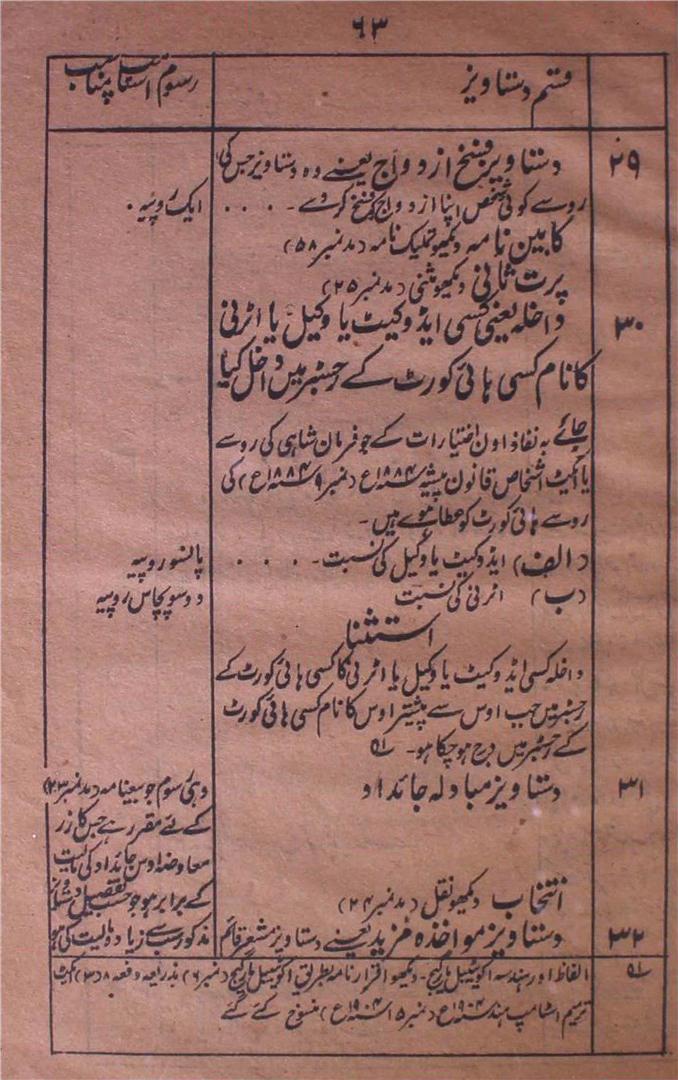 ۶۳
قسم دستاویز
رسوم اسٹامپ مناسب
۲۹
دستاویز فسخ ازدواج یعنے وہ دستاویز جس کی
روسے کوئی شخص اپنا ازدواج کو فسخ کردے ۔ . . . .
ایک روپیہ ۔
کابین نامہ دیکھو تملیک نامہ (مد نمبر ۵۸)
پرت ثانی دیکھو مثنی (مد نمبر ۲۵)
۳۰
داخلہ یعنی کسی ایڈوکیٹ یا وکیل یا اٹرنی
کا نام کسی ہائی کورٹ کے رجسٹر میں داخل کیا
جائے بہ نفاذ اون اختیارات کے جو فرمان شاہی کی روسے
یا ایکٹ اشخاص قانون پیشہ سنہ ۱۸۸۴ع (نمبر ۹ سنہ ۱۸۸۴ع) کی
روسے ہائی کورٹ کو عطا ہوے ہیں ۔
(الف) ایڈوکیٹ یا وکیل کی نسبت ۔ . . . .
پانسو روپیہ
(ب) اٹرنی کی نسبت
دوسو پچاس روپیہ
استثنا
داخلہ کسی ایڈوکیٹ یا وکیل یا اٹرنی کا کسی ہائی کورٹ کے
رجسٹر میں جب اوس سے پیشتر اوس کا نام کسی ہائی کورٹ
کے رجسٹر میں درج ہوچکا ہو ۔ ۱؎
۳۱
دستاویز مبادلہ جائداد
وہی رسوم جو بیعنامہ (مد نمبر ۲۳)
کے لئے مقرر ہے جس کا زر
معاوضہ اوس جائداد کی مالیت
کے برابر ہو جو حسب تفصیل دستاویز
مذکور سب سے زیادہ مالیت کی ہو
انتخاب دیکھو نقل (مد نمبر ۲۴)
۳۲
دستاویز مواخذہ مزید یعنے دستاویز مشعر قائم
۱؎
الفاظ اور ہندسہ اکویٹیبل مارگیج ۔ دیکھو اقرارنامہ بطریق اکویٹیبل مارگیج (نمبر ۶) بذریعہ دفعہ ۸ (۳) ایکٹ
ترمیم اسٹامپ ہند سنہ ۱۹۰۴ع (نمبر ۱۵ سنہ ۱۹۰۴ع) منسوخ کئے گئے